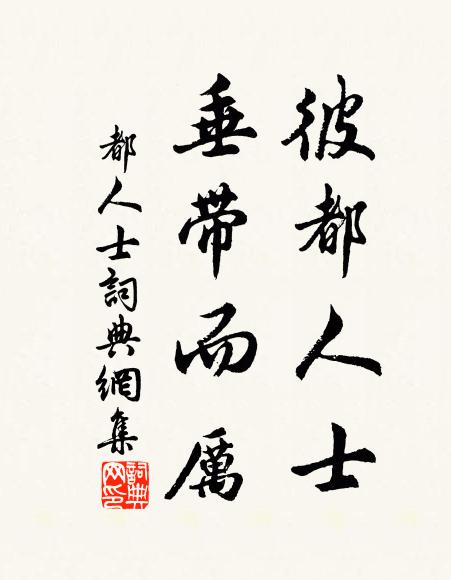 彼都人士
垂带而厲
都人士詞典網集
詞典网印